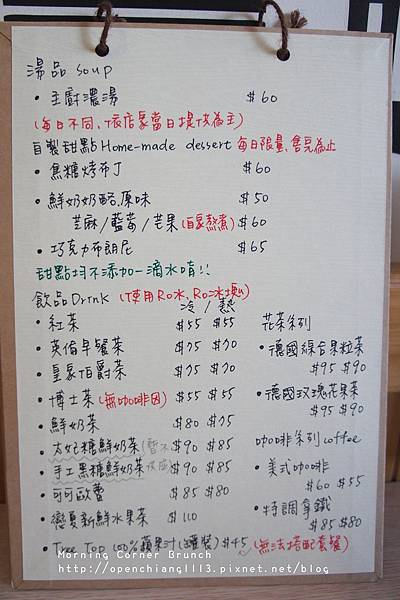 湯品 Soup
• 主廚濃湯 $60
(每日不同、依店家當日提供為主)
自製甜點 Home-made dessert 每日限量,售完為止
• 焦糖烤布丁 $60
• 鮮奶奶酪.原味 $50
芝麻/藍莓/芒果(自家熬煮) $60
• 巧克力布朗尼 $65
甜點均不添加一滴水唷!!
飲品 Drink (使用RO水、RO冰塊) 冷/熱
• 紅茶 $55 $55
• 英倫早餐茶 $75 $70
• 皇家伯爵茶 $75 $70
• 博士茶(無咖啡因) $55 $55
• 鮮奶茶 $80 $75
• 太妃糖鮮奶茶 $90 $85
• 手工黑糖鮮奶茶 $90 $85
• 可可歐蕾 $85 $80
• 戀夏新鮮水果茶 $110
• Tree Top 100%蘋果汁(罐裝) $45 (無法搭配套餐)
花茶系列
• 德國綜合果粒茶
$95 $90
• 德國玫瑰花果茶
$95 $90
咖啡系列 coffee
• 美式咖啡
$60 $55
• 特調拿鐵
$85 $80
Morning Corner Brunch
http://openchiang1113.pixnet.net/blog